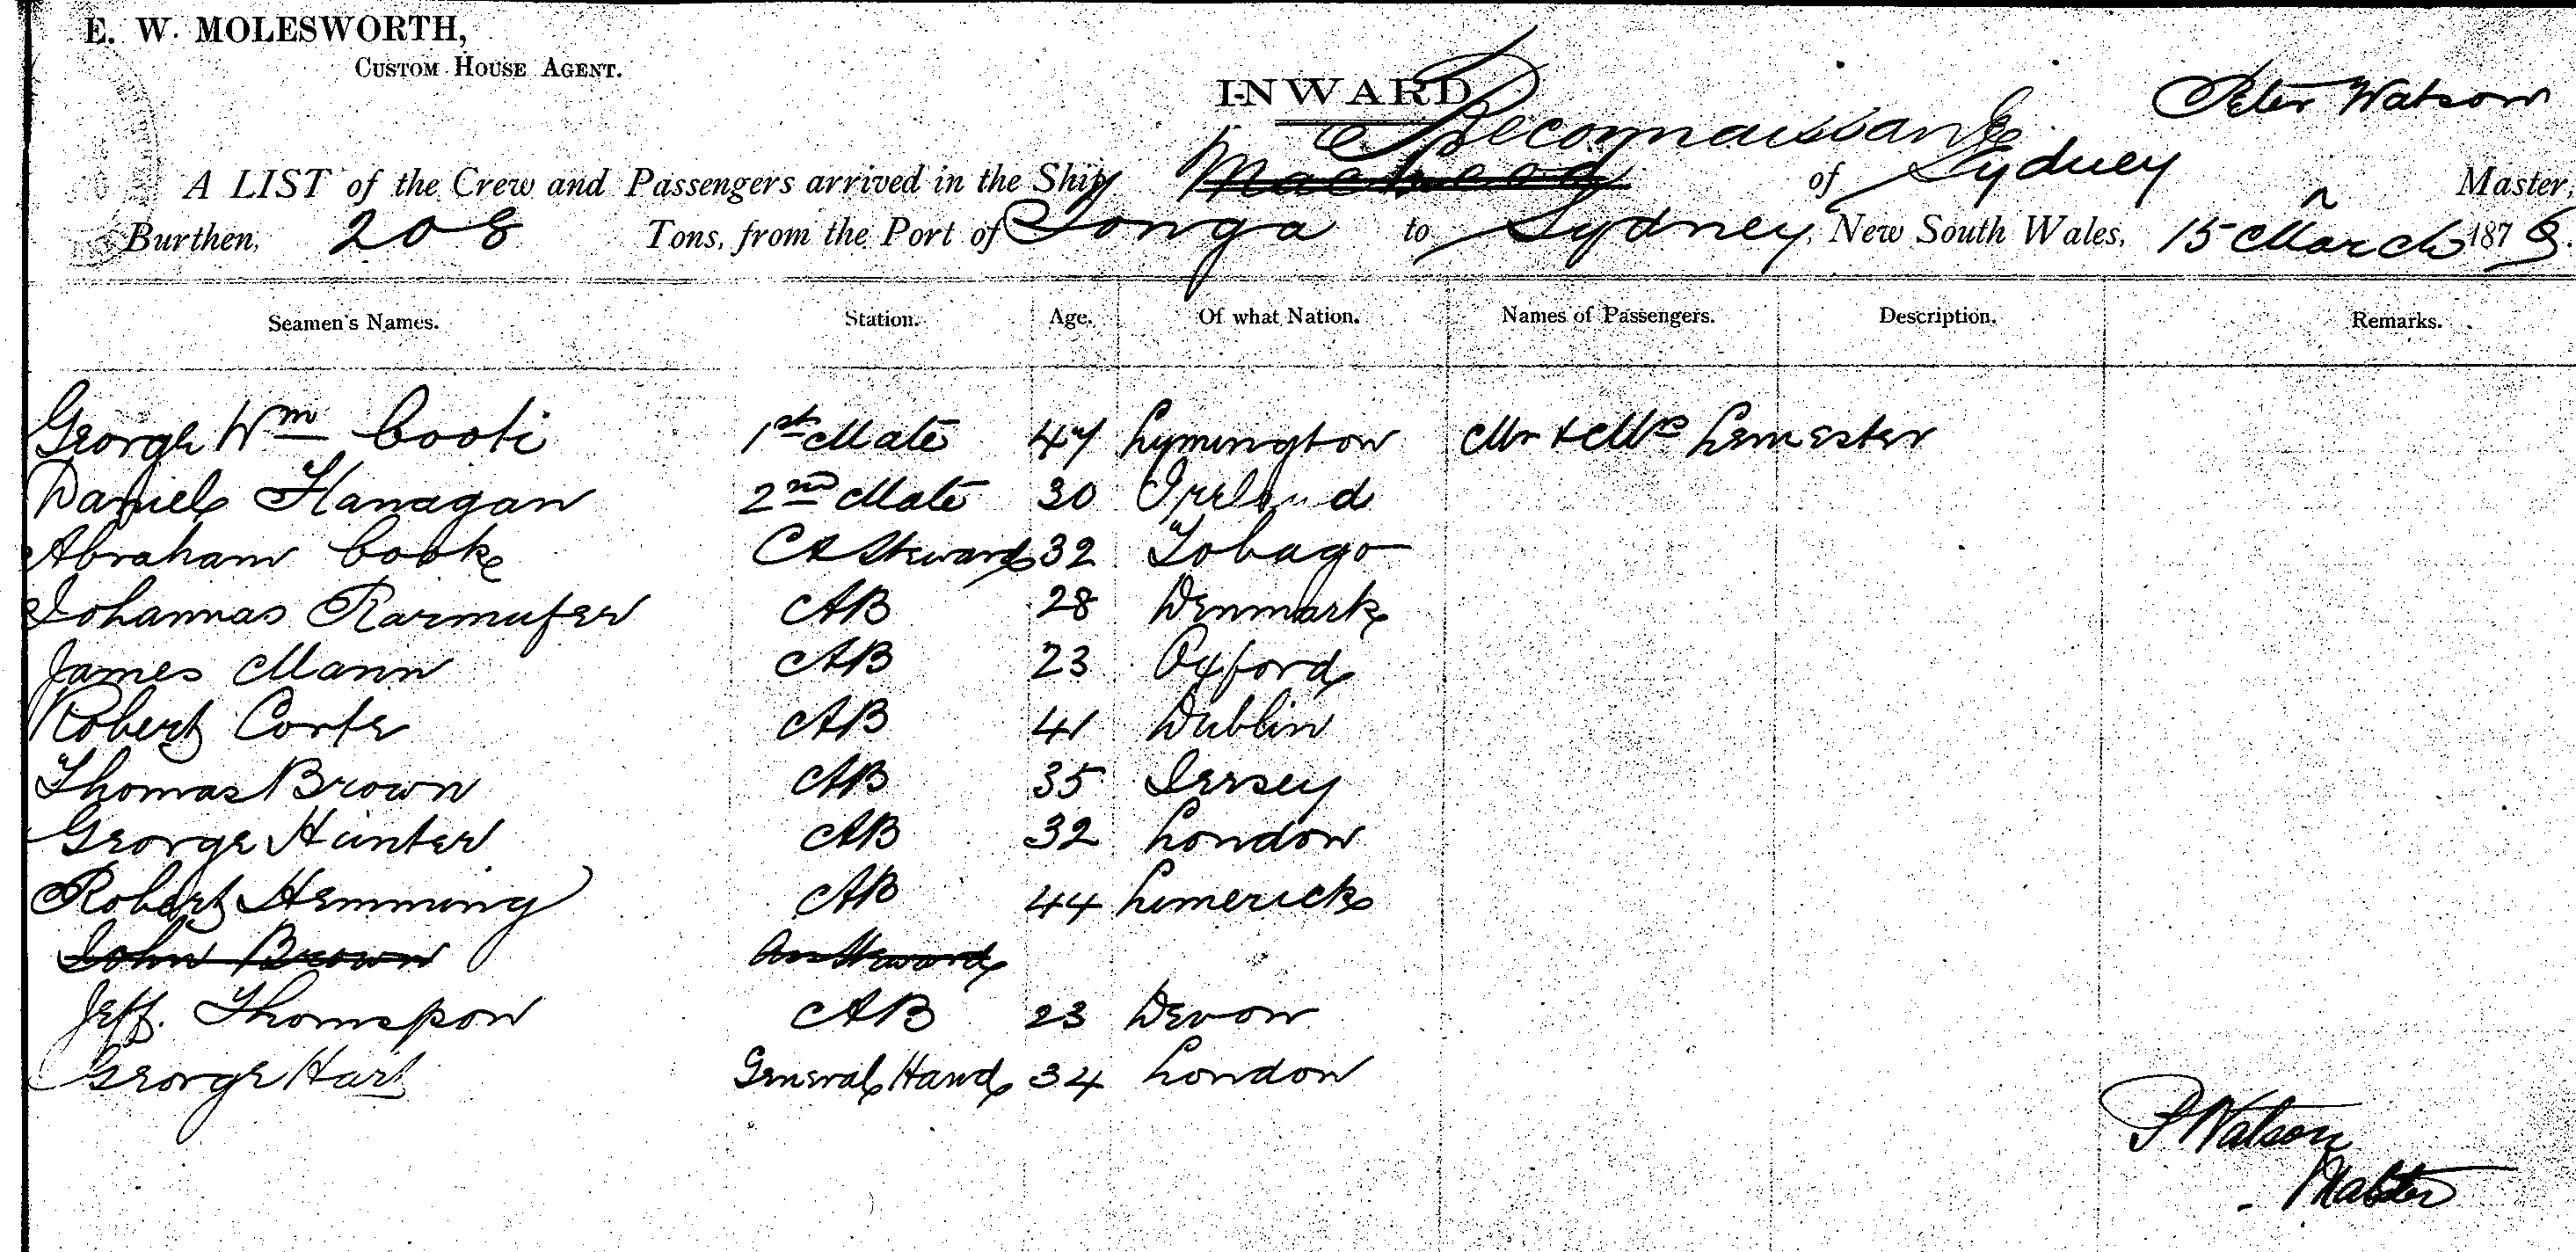 E. W. MOLESWORTH,
CUSTOM HOUSE AGENT.
INWARD
Reconnaissance
Peter Watson
A LIST of the Crew and Passengers arrived in the Ship of Sydney Master,
Burthen, 208 Tons, from the Port of Tonga to Sydney, New South Wales, 15 March 1878.
Seamen's Names. Station. Age. Of what Nation. Names of Passengers. Description. Remarks.
George Wm 1st Mate 47 Lymington Mr & Mrs Lemester
Daniel Flanagan 2nd Mate 30 Ireland
Abraham Cooke C & Steward 32 Tobago
Johannas AB 28 Denmark
James Mann AB 23 Oxford
Robert AB 41 Dublin
Thomas Brown AB 35 Jersey
George Hunter AB 32 London
Robert Hemming AB 44 Limerick
John Brown Steward
Jeff. Thomspon AB 23 Devon
George Hart General Hand 34 London
P Watson
Master